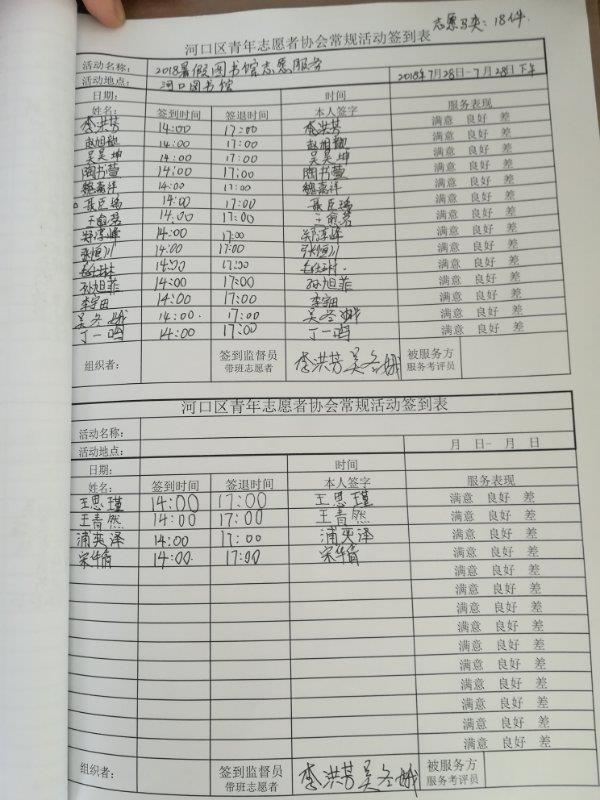 志愿马夹:18件.
河口区青年志愿者协会常规活动签到表
活动名称: 2018暑假图书馆志愿服务
活动地点: 河口图书馆 2018年7月28日-7月28日下午
日期: 时间
姓名: 签到时间 签退时间 本人签字 服务表现
李洪芳 14:00 17:00 李洪芳 满意 良好 差
赵旭 14:00 17:00 赵旭 满意 良好 差
吴昊坤 14:00 17:00 吴昊坤 满意 良好 差
陶书萱 14:00 17:00 陶书萱 满意 良好 差
魏嘉祥 14:00 17:00 魏嘉祥 满意 良好 差
聂臣瑞 14:00 17:00 聂臣瑞 满意 良好 差
王俞茗 14:00 17:00 王俞茗 满意 良好 差
郑淳峰 14:00 17:00 郑淳峰 满意 良好 差
张恒川 14:00 17:00 张恒川 满意 良好 差
14:00 17:00 满意 良好 差
孙旭菲 14:00 17:00 孙旭菲 满意 良好 差
李宇田 14:00 17:00 李宇田 满意 良好 差
吴冬娥 14:00 17:00 吴冬娥 满意 良好 差
丁一鸣 14:00 17:00 丁一鸣 满意 良好 差
组织者: 签到监督员 李洪芳 吴冬娥 被服务方
带班志愿者 服务考评员
河口区青年志愿者协会常规活动签到表
活动名称:
活动地点: 月 日- 月 日
日期: 时间
姓名: 签到时间 签退时间 本人签字 服务表现
王思瑾 14:00 17:00 王思瑾 满意 良好 差
王青然 14:00 17:00 王青然 满意 良好 差
浦奕泽 14:00 17:00 浦奕泽 满意 良好 差
宋华育 14:00 17:00 宋华育 满意 良好 差
满意 良好 差
满意 良好 差
满意 良好 差
满意 良好 差
满意 良好 差
满意 良好 差
满意 良好 差
满意 良好 差
满意 良好 差
满意 良好 差
组织者: 签到监督员 李洪芳 吴冬娥 被服务方
带班志愿者 服务考评员